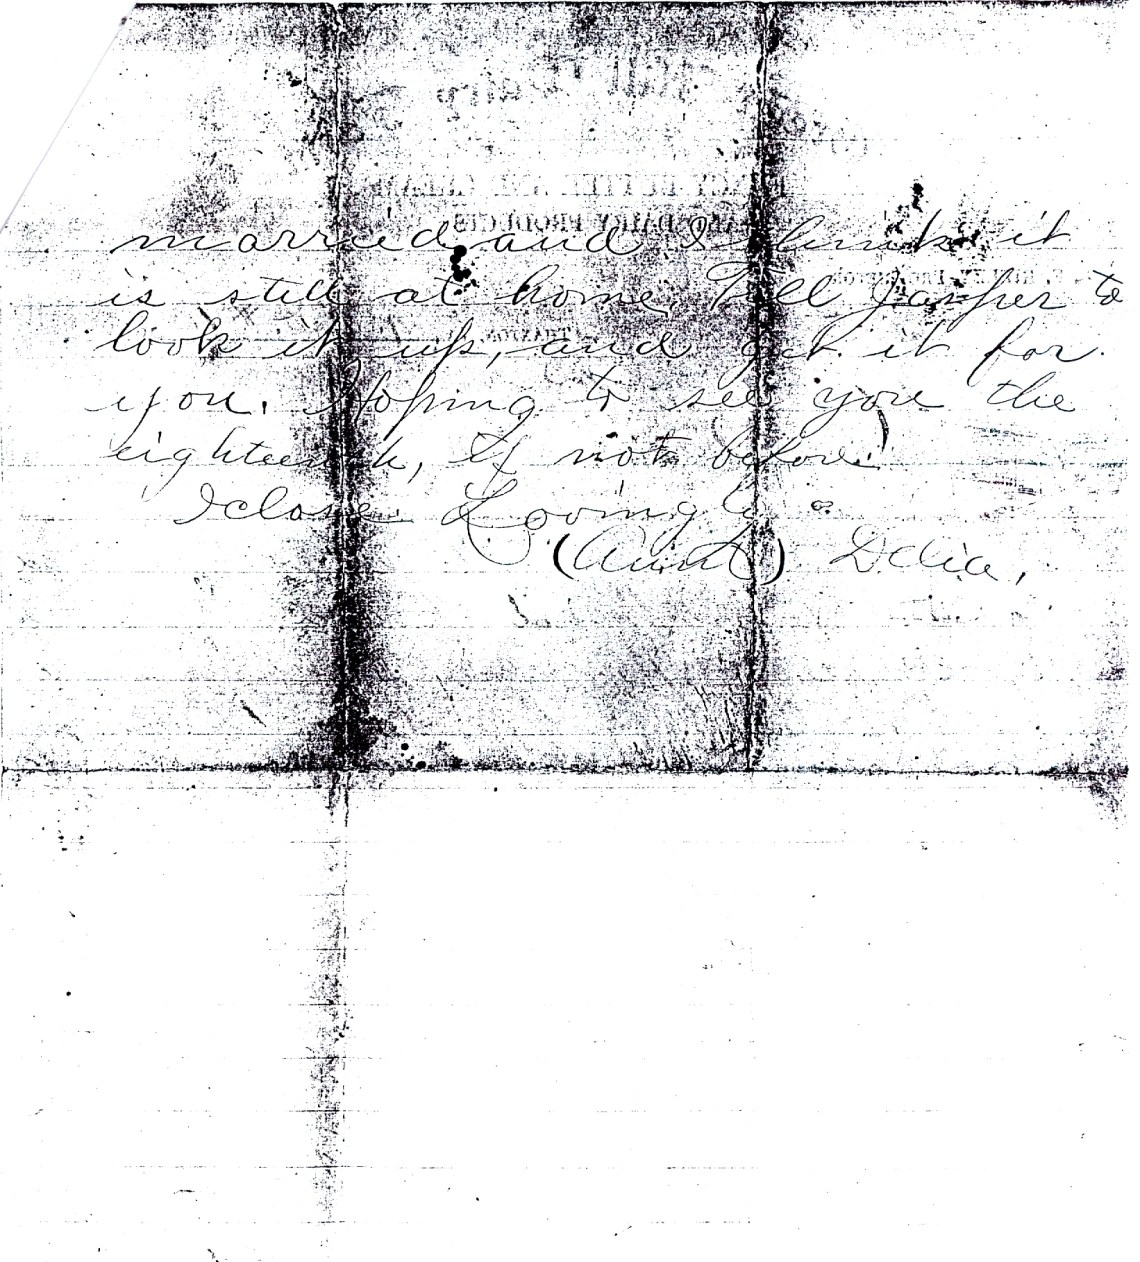 married, and I think it
is still at home. Tell Jasper to
look it up, and get it for
you. Hoping to see you the
eighteenth, If not before.
I close Lovingly
(Aunt) Delia.
DAIRY PRODUCTS